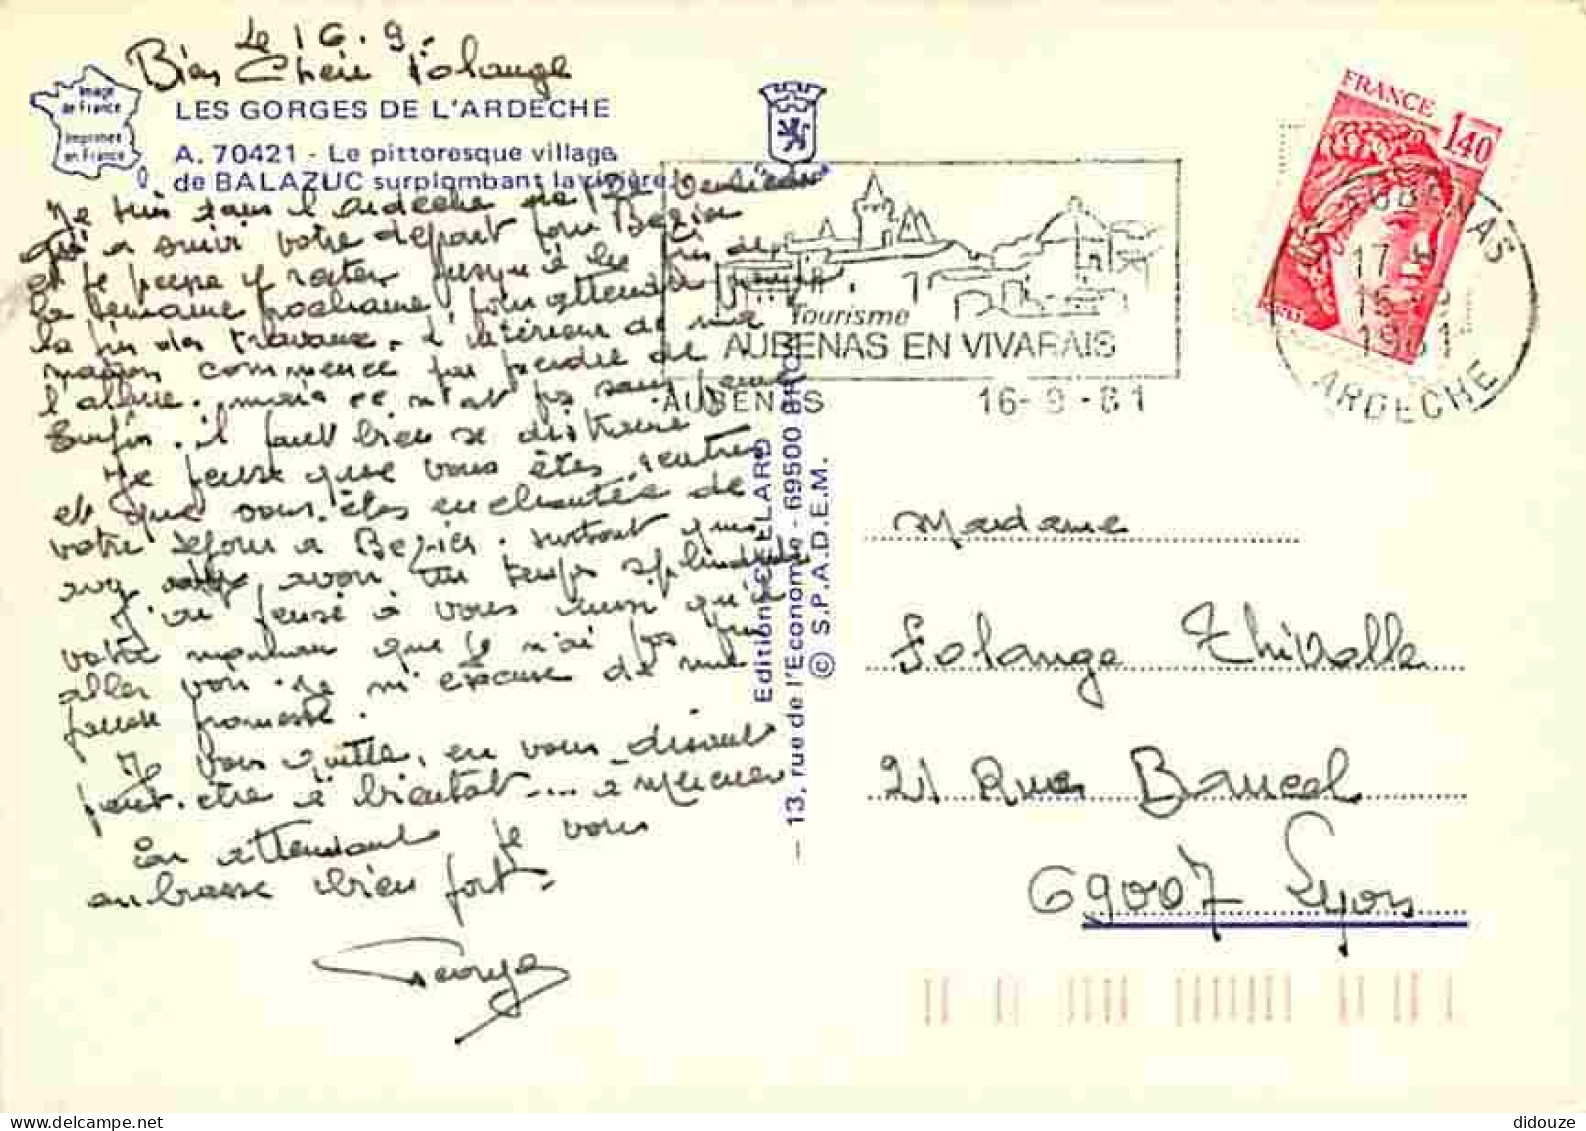 Le 16.9.
Bien Chère Solange
Image
de France
Imprimée
en France
LES GORGES DE L'ARDECHE
A. 70421 - Le pittoresque village
de BALAZUC surplombant la rivière
Je suis dans l'Ardèche
qui a suivi votre départ pour Bezier
et je pense y rester jusqu'à la fin de
la semaine prochaine, pour attendre
la fin des travaux. L'intérieur de ma
maison commence par prendre de
l'allure. mais ce n'est pas sans peine
Enfin. il faut bien se distraire
Je pense que vous êtes rentrée
et que vous êtes enchantée de
votre séjour à Bezier. surtout que
avoir un temps splendide
J'ai pensé à vous ainsi qu'à
votre que je n'ai pas pu
aller voir. Je m'excuse de ma
fausse promesse.
Je vous quitte, en vous disant
peut-être à bientôt.... à Mercuer
En attendant je vous
embrasse bien fort.
Georges
Editions CELLARD
- 13, rue de l'Economie - 69500 BRON
© S.P.A.D.E.M.
Tourisme
AUBENAS EN VIVARAIS
AUBENAS 16-9-81
FRANCE
1,40
AUBENAS
17 H
16-9
1981
ARDECHE
Madame
Solange Thivolle
21 Rue Bancel
69007 Lyon
didouze